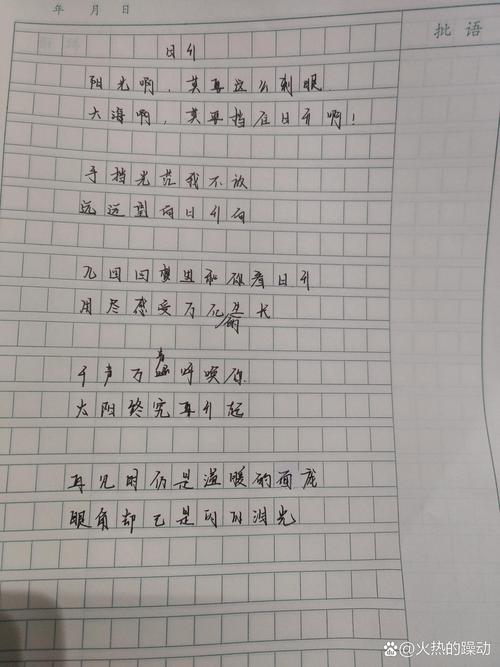 年 月 日
批 语
日升
阳光啊，莫再这么刺眼
大海啊，莫再挡在日升啊！
手挡光茫我不放
远远望向日升向
几回回梦里和你看日升
用尽感受万亿的长
千声万声呼唤你
太阳终究再升起
再见时仍是温暖的面庞
眼角却已是闪闪泪光
火热的躁动